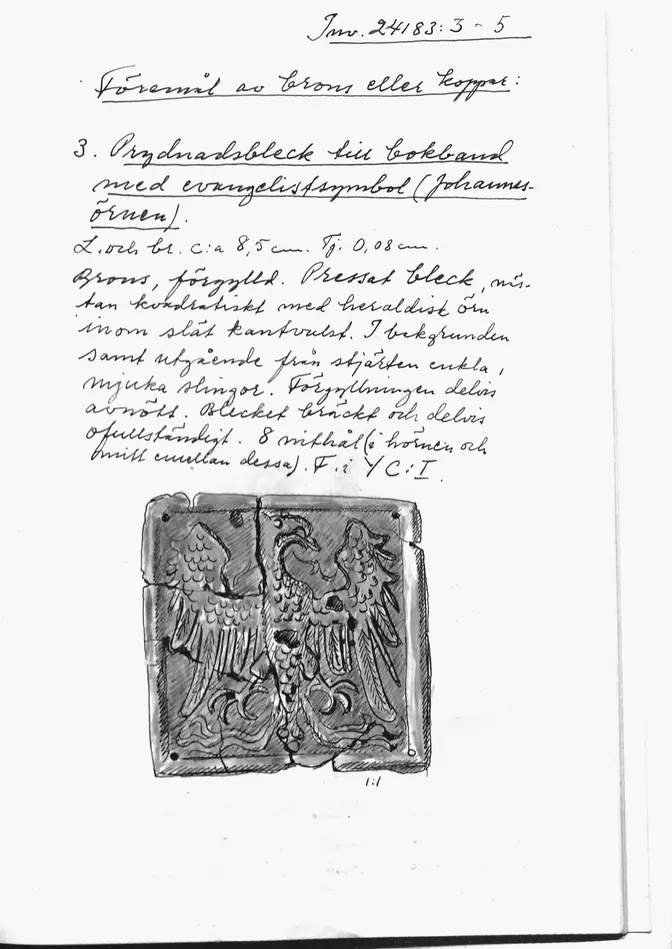 Inv. 24183:3-5
Föremål av brons eller koppar:
3. Prydnadsbleck till bokband
med evangelistsymbol (Johannes-
örnen).
L. och br. c:a 8,5 cm. Tj. 0,08 cm.
Brons, förgylld. Pressat bleck, näs-
tan kvadratiskt med heraldisk örn
inom slät kantvulst. I bakgrunden
samt utgående från stjärten enkla,
mjuka slingor. Förgyllningen delvis
avnött. Blecket bräckt och delvis
ofullständigt. 8 nithål (i hörnen och
mitt emellan dessa). F. i Y C:I.
1:1